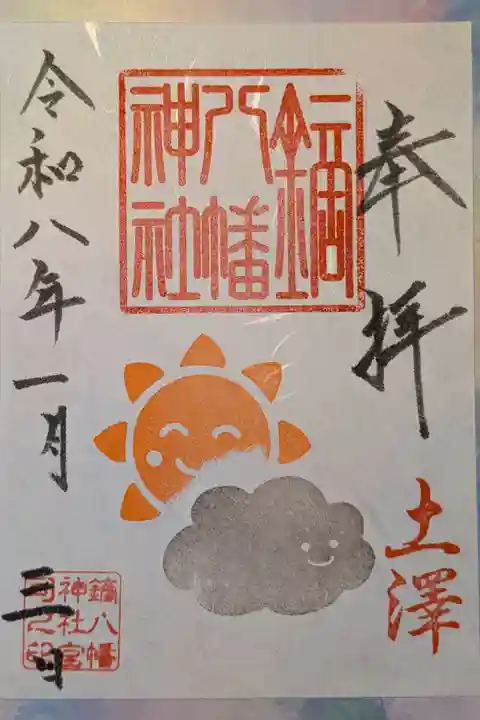 奉拝
土澤
鏑八幡
神社
令和八年一月
三日
鏑八幡
神社宮
司之印